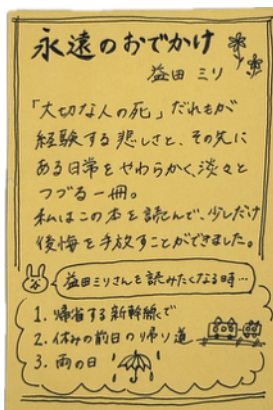 永遠のおでかけ
益田 ミリ
「大切な人の死」だれもが
経験する悲しさと、その先に
ある日常をやわらかく、淡々と
つづる一冊。
私はこの本を読んで、少しだけ
後悔を手放すことができました。
益田ミリさんを読みたくなる時…
1. 帰省する新幹線で
2. 休みの前日の帰り道
3. 雨の日